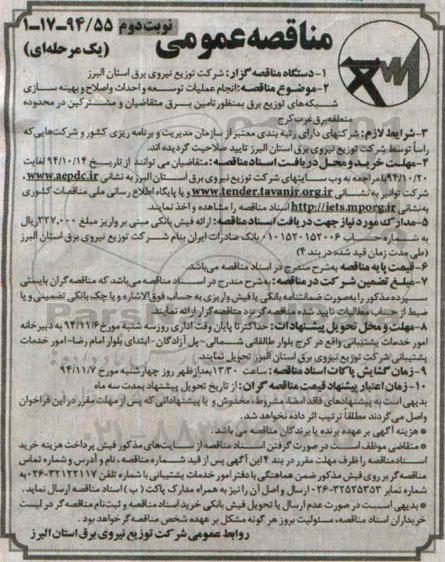 مناقصه عمومی
نوبت دوم ۹۴/۵۵-۱۷-۱
(یک مرحله‌ای)
۱- دستگاه مناقصه گزار: شرکت توزیع نیروی برق استان البرز
۲- موضوع مناقصه: انجام عملیات توسعه و احداث واصلاح و بهینه سازی
شبکه‌های توزیع برق بمنظور تامین برق متقاضیان و مشترکین در محدوده
منطقه برق غرب کرج
۳- شرایط لازم: شرکتهای دارای رتبه بندی معتبر از سازمان مدیریت و برنامه ریزی کشور و شرکت‌هایی که
راسأ توسط شرکت توزیع نیروی برق استان البرز تایید صلاحیت گردیده اند.
۴- مهلت خرید و محل دریافت اسناد مناقصه: متقاضیان می توانند از تاریخ ۹۴/۱۰/۱۴ لغایت
۹۴/۱۰/۲۰ با مراجعه به وب سایتهای شرکت توزیع نیروی برق استان البرز به نشانی www.aepdc.ir،
شرکت توانیر به نشانی www.tender.tavanir.org.ir و یا پایگاه اطلاع رسانی ملی مناقصات کشوری
به نشانی http://iets.mporg.ir اسناد مناقصه را مشاهده و اخذ نمایند.
۵- مدارک مورد نیاز جهت دریافت اسناد مناقصه: ارائه فیش بانکی مبنی بر واریز مبلغ ۳۲۷،۰۰۰ ریال
به شماره حساب ۰۱۰۱۵۳۰۱۵۲۰۰۶ بانک صادرات ایران بنام شرکت توزیع نیروی برق استان البرز
(طی مدت زمان قید شده در بند ۴)
۶- قیمت پایه مناقصه به شرح مندرج در اسناد مناقصه می‌باشد.
۷- مبلغ تضمین شرکت در مناقصه: به شرح مندرج در اسناد مناقصه می‌باشد که مناقصه گران بایستی
سپرده مذکور را به صورت ضمانتنامه بانکی یا فیش واریزی به حساب فوق الاشاره و یا چک بانکی تضمینی و یا
ضبط از حساب مطالبات تایید شده مناقصه گر نزد مناقصه گزار ارائه نمایند.
۸- مهلت و محل تحویل پیشنهادات: حداکثر تا پایان وقت اداری روز سه شنبه مورخ ۹۴/۱۱/۶ به دبیرخانه
امور خدمات پشتیبانی واقع در کرج بلوار طالقانی شمالی- پل آزادگان - ابتدای بلوار امام رضا- امور خدمات
پشتیبانی شرکت توزیع نیروی برق استان البرز تحویل نمایند.
۹- زمان گشایش پاکات اسناد مناقصه: ساعت ۱۳:۳۰ بعد از ظهر روز چهارشنبه مورخ ۹۴/۱۱/۷
۱۰- زمان اعتبار پیشنهاد قیمت مناقصه گران: از تاریخ تحویل پیشنهاد بمدت سه ماه
بدیهی است به پیشنهادهای فاقد امضاء، مشروط، مخدوش و یا پیشنهاداتی که پس از مهلت مقرر در این فراخوان
واصل می گردند مطلقاً ترتیب اثر داده نخواهد شد.
* هزینه آگهی بر عهده برنده یا برندگان مناقصه می باشد.
* متقاضی موظف است در صورت گرفتن اسناد مناقصه از سایت‌های مذکور فیش پرداخت هزینه خرید
اسناد مناقصه را ظرف مهلت مقرر در بند ۴ این آگهی پس از قید شماره مناقصه، نام و آدرس و شماره تماس
مناقصه گر بر روی فیش مذکور ضمن هماهنگی با دفتر امور خدمات پشتیبانی با شماره تلفن ۳۲۱۲۲۱۱۷-۰۲۶ به
شماره نمابر ۳۲۵۲۵۳۵۳-۰۲۶ ارسال و اصل آن را نیز به همراه مدارک پاکت (ب) اسناد مناقصه ارسال نماید.
* بدیهی است در صورت عدم ارسال یا تحویل فیش بانکی خرید اسناد مناقصه و ثبت نام مناقصه گر در لیست
خریداران اسناد مناقصه، مسئولیت بروز هر گونه مشکل بر عهده شخص مناقصه گر خواهد بود.
روابط عمومی شرکت توزیع نیروی برق استان البرز